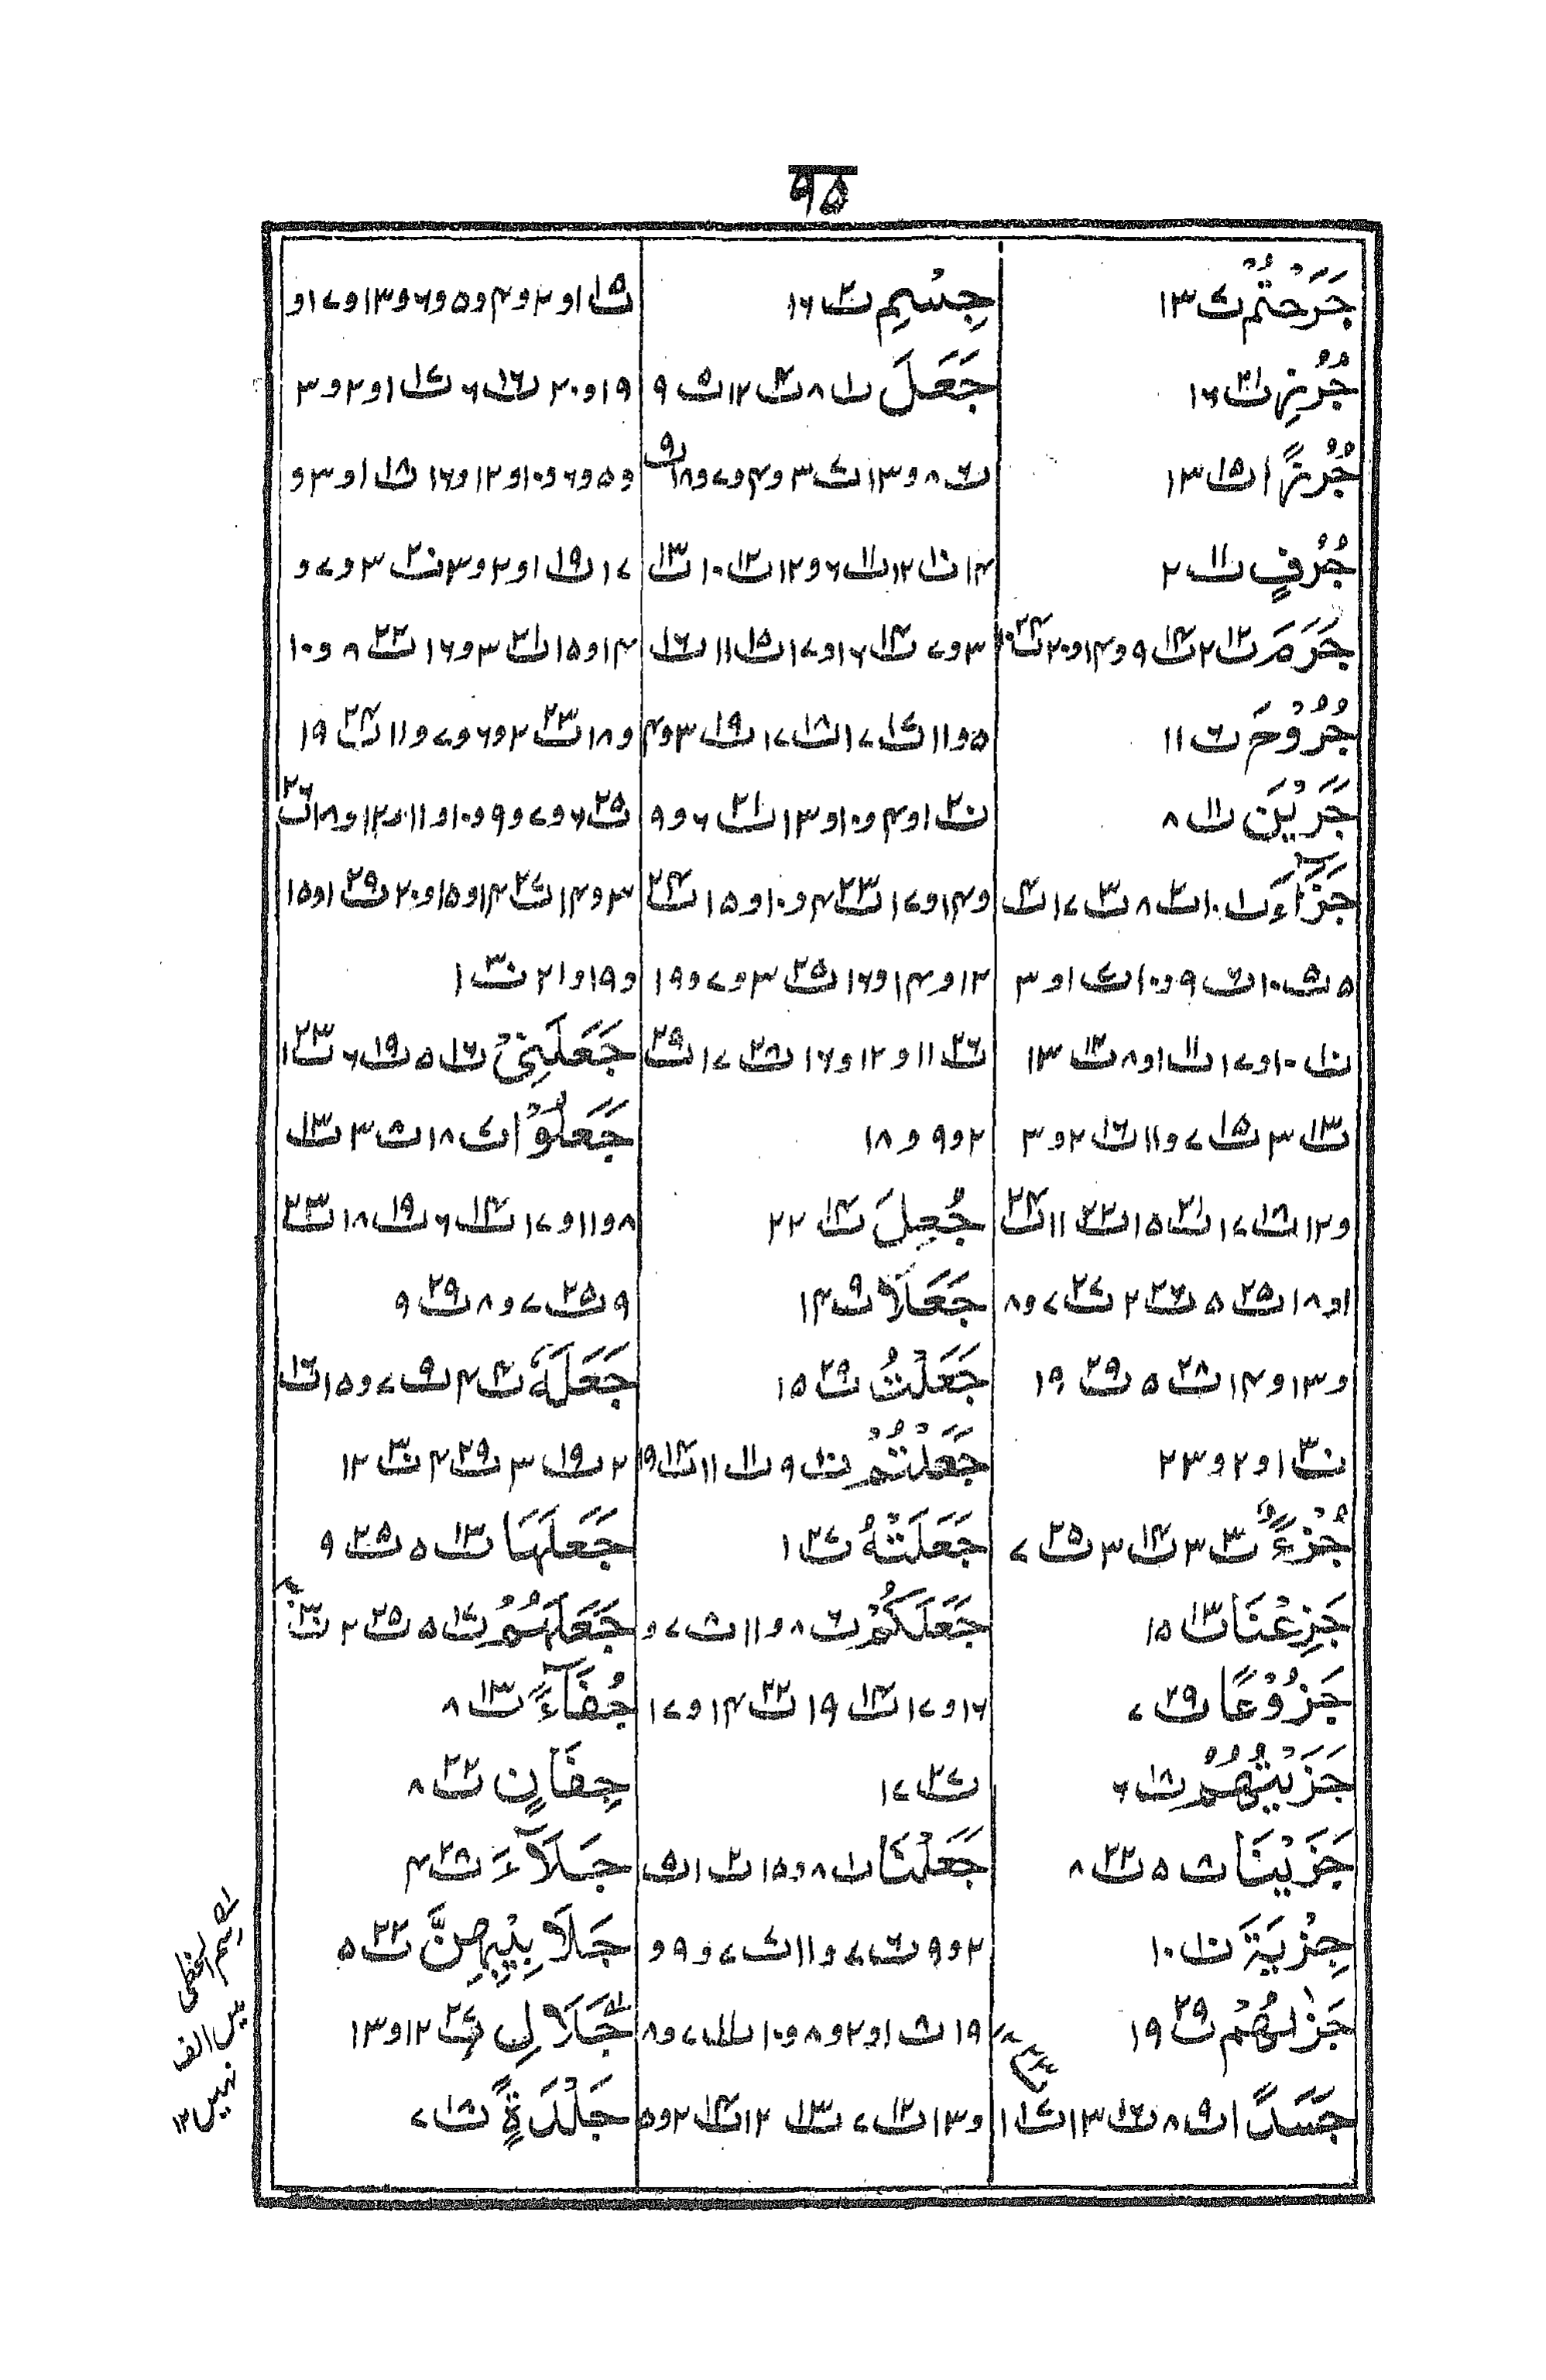 ۹۵
جَرَحْتُمْ ت۷ ۱۳
جُرُزِ ت۲۱ ۱۶
جُرُزًا ت۱۵ ۱۳
جُرُفٍ ت۱۱ ۲
جَرَمَ ت۱۲ ۲ ت۱۴ ۹ و ۱۴ و ۲۰ ت۲۴ ۱۰
جُرُوْحَ ت۶ ۱۱
جَرَيْنَ ت۱۱ ۸
جَزَآءَ ت۱ ۱۰ ت۲ ۸ ت۳ ۱۷ ت۴
۵ ت۵ ۱۰ ت۶ ۹ و ۱۰ ت۷ ۱ و ۳
ت۱۰ ۱۰ و ۱۷ ت۱۱ ۱ و ۸ ت۱۲ ۱۳
ت۱۳ ۳ ت۱۵ ۷ و ۱۱ ت۱۶ ۲ و ۳
و ۱۲ ت۱۸ ۱۷ ت۲۱ ۱۵ ت۲۲ ۱۱ ت۲۴
۱ و ۱۸ ت۲۵ ۵ ت۲۶ ۲ ت۲۷ ۷ و ۸
و ۱۳ و ۱۴ ت۲۸ ۵ ت۲۹ ۱۹
ت۳۰ ۱ و ۲ و ۲۳
جُزْءً ت۳ ۳ ت۱۴ ۳ ت۲۵ ۷
جَزِعْنَا ت۱۳ ۱۵
جَزُوْعًا ت۲۹ ۷
جَزَيْتُهُمْ ت۱۸ ۶
جَزَيْنَا ت۸ ۵ ت۲۲ ۸
جِزْيَةَ ت۱۰ ۱۰
جَزٰىهُمْ ت۲۹ ۱۹
جَسَدًا ت۹ ۸ ت۱۶ ۱۳ ت۱۷ ۱
جِسْمِ ت۲ ۱۶
جَعَلَ ت۱ ۸ ت۴ ۱۲ ت۵ ۹
ت۶ ۸ و ۱۳ ت۷ ۳ و ۴ و ۷ و ۱۸ ت۹
۱۴ ت۱۰ ۱۲ ت۱۱ ۶ و ۱۲ ت۱۲ ۱۰ ت۱۳
۳ و ۷ ت۱۴ ۱۶ و ۱۷ ت۱۵ ۱۱ ت۱۶
۵ و ۱۱ ت۱۷ ۱۷ ت۱۸ ۱۷ ت۱۹ ۳ و ۴
ت۲۰ ۱ و ۴ و ۱۰ و ۱۳ ت۲۱ ۶ و ۹
و ۱۴ و ۱۷ ت۲۳ ۴ و ۱۰ و ۱۵ ت۲۴
۱۲ و ۱۴ و ۱۶ ت۲۵ ۳ و ۷ و ۱۹
ت۲۶ ۱۱ و ۱۲ و ۱۶ ت۲۸ ۱۷ ت۲۹
۲ و ۹ و ۱۸
جُعِلَ ت۱۴ ۲۲
جَعَلَا ت۹ ۱۴
جَعَلْتُ ت۲۹ ۱۵
جَعَلْتُمْ ت۱۰ ۹ ت۱۱ ۱۱ ت۱۴ ۱۹
جَعَلَتْهُ ت۲۷ ۱
جَعَلَكُمْ ت۶ ۸ و ۱۱ ت۸ ۷ و
۱۶ و ۱۷ ت۱۴ ۱۹ ت۲۲ ۱۴ و ۱۷
ت۲۷ ۱۷
جَعَلْنَا ت۱ ۸ و ۱۵ ت۲ ۱ ت۵
۲ و ۹ ت۶ ۷ و ۱۱ ت۷ ۷ و ۹ و
۱۹ ت۸ ۱ و ۲ و ۸ و ۱۰ ت۱۱ ۷ و ۸
و ۱۳ ت۱۲ ۷ ت۱۳ ۱۲ ت۱۴ ۲ و ۵
ت۱۵ ۱ و ۲ و ۴ و ۵ و ۶ و ۱۳ و ۱۷ و
۱۹ و ۲۰ ت۱۶ ۶ ت۱۷ ۱ و ۲ و ۳
و ۵ و ۶ و ۱۰ و ۱۲ و ۱۶ ت۱۸ ۱ و ۳ و
۱۷ ت۱۹ ۱ و ۲ و ۳ ت۲۰ ۳ و ۷ و
۱۴ و ۱۵ ت۲۱ ۳ و ۱۶ ت۲۲ ۸ و ۱۰
و ۱۸ ت۲۳ ۲ و ۶ و ۷ و ۱۱ ت۲۴ ۱۹
ت۲۵ ۶ و ۷ و ۹ و ۱۰ و ۱۱ و ۱۲ و ۱۸ ت۲۶
۳ و ۱۴ ت۲۷ ۱۴ و ۱۵ و ۲۰ ت۲۹ ۱ و ۱۵
و ۱۹ و ۲۱ ت۳۰ ۱
جَعَلَنِیْ ت۱۶ ۵ ت۱۹ ۶ ت۲۳ ۱
جَعَلُوْا ت۷ ۱۸ ت۸ ۳ ت۱۳
۸ و ۱۱ و ۱۷ ت۱۴ ۶ ت۱۹ ۱۸ ت۲۳
۹ ت۲۵ ۷ و ۸ ت۲۹ ۹
جَعَلَهٗ ت۴ ۴ ت۹ ۷ و ۱۵ ت۱۶
۲ ت۱۹ ۳ ت۲۹ ۴ ت۳۰ ۱۲
جَعَلَهَا ت۱۳ ۵ ت۲۵ ۹
جَعَلَهُمْ ت۱۷ ۵ ت۲۵ ۲ ت۳۰
جُفَآءً ت۱۳ ۸
جِفَانٍ ت۲۲ ۸
جَلَآءَ ت۲۸ ۴
جَلَابِيْبِهِنَّ ت۲۲ ۵
جَلَالِ ت۲۷ ۱۲ و ۱۳
جَلْدَةٍ ت۱۸ ۷
رسم الخطی
میں الف
نہیں ۱۲